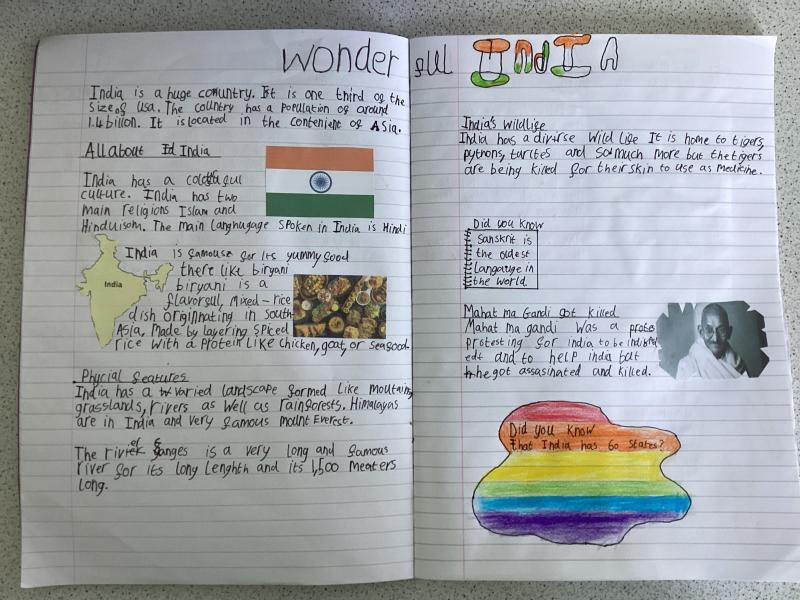 Wonderful IndIA
India is a huge country. It is one third of the
size of usa. The country has a population of around
1.4 billon. It is located in the contenient of Asia.
All about Id India
India has a colourful
culture. India has two
main religions Islam and
Hinduisom. The main langhugage spoken in India is Hindi
India is famouse for its yummy food
there like biryani
biryani is a
flavorful, mixed-rice
dish originnating in south
Asia, made by layering spiced
rice with a protein like chicken, goat, or seafood.
India
Phycial features
India has a varied landscape formed like moutains,
grasslands, rivers as well as rainforests. Himalayas
are in India and very famous mount Everest.
The river of Ganges is a very long and famous
river for its long lenghth and its 1,500 meaters
long.
India's wildlife
India has a divirse wild life It is home to tigers,
pytrons, turltes and so much more but the tigers
are being killed for their skin to use as medicine.
Did you know
Sanskrit is
the oldest
langauge in
the world.
Mahat ma Gandi got killed
Mahat ma gandi was a
protesting for india to be
and to help india but
he got assasinated and killed.
Did you know
that India has 60 states?